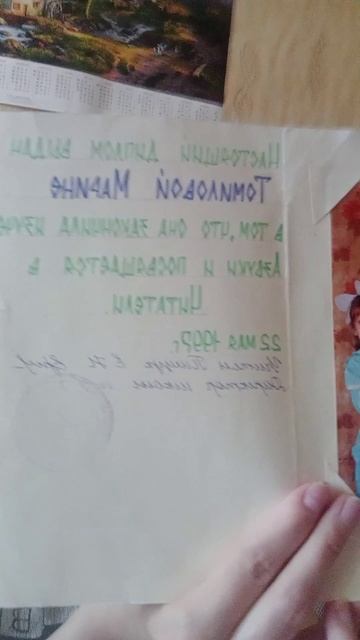 Настоящий диплом выдан
Томиловой Марине
в том, что она закончила изуче
Азбуки и посвящается в
Читатели.
22 мая 1997г.
Учитель
Директор школы